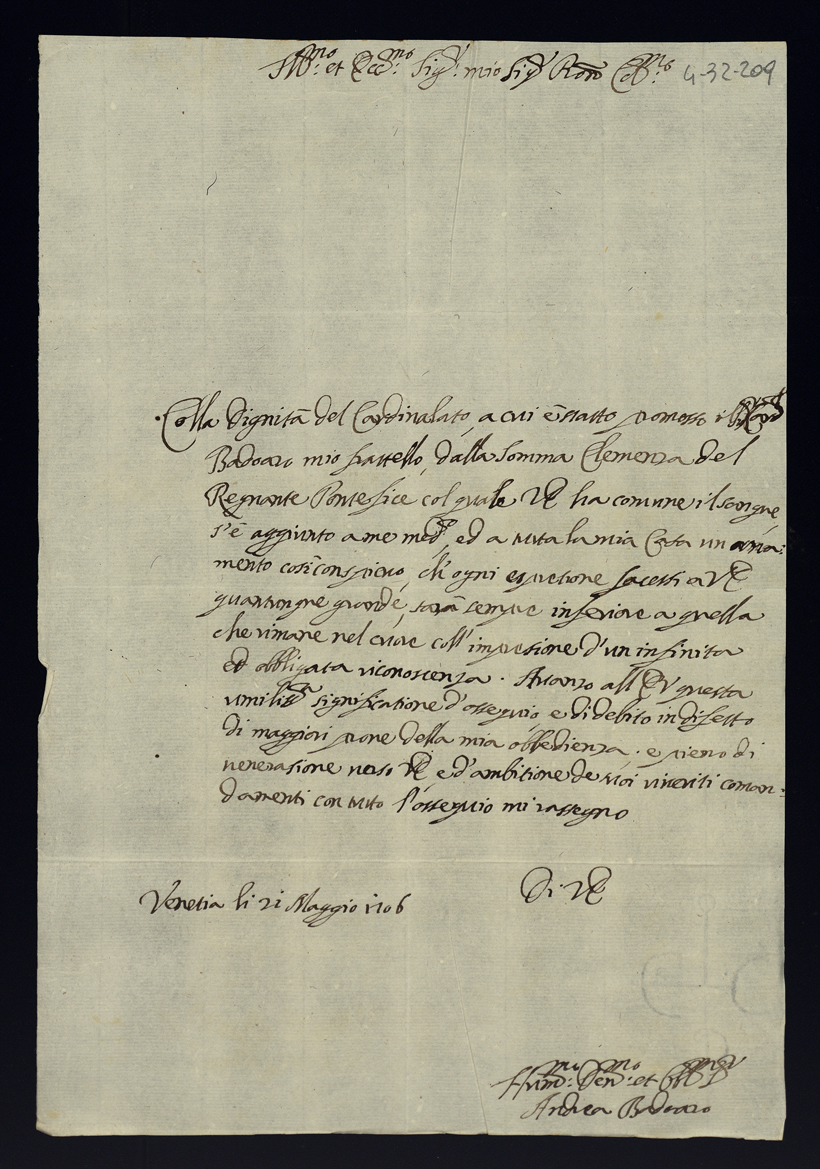 Ill:mo et Ecc:mo Sig:r mio Sig:r Pron Coll:mo 4-32-209
Colla Dignità del Cardinalato, a cui è statto promosso il
Badoaro mio frattello, dalla somma Clemenza del
Regnante Pontefice col quale VE ha comune il sangue,
s'è aggiunto a me med:o, ed a tutta la mia Casa un orna:
mento così conspicuo, ch'ogni espressione facessi a VE
quantunque grande, sarà sempre inferiore a quella
che rimane nel cuore coll'impresione d'un infinita
ed obbligata riconoscenza. Avanzo all'EV questa
umiliss:ma significatione d'ossequio, e di debito in difetto
di maggiori prove della mia obbedienza. e pieno di
venerasione verso VE e d'ambitione de suoi riveriti coman:
damenti con tutto l'ossequio mi rassegno
Di VE
Venetia li 21 Maggio 1706
Hum:mo Den:mo et Obb:mo
Andrea Badoaro